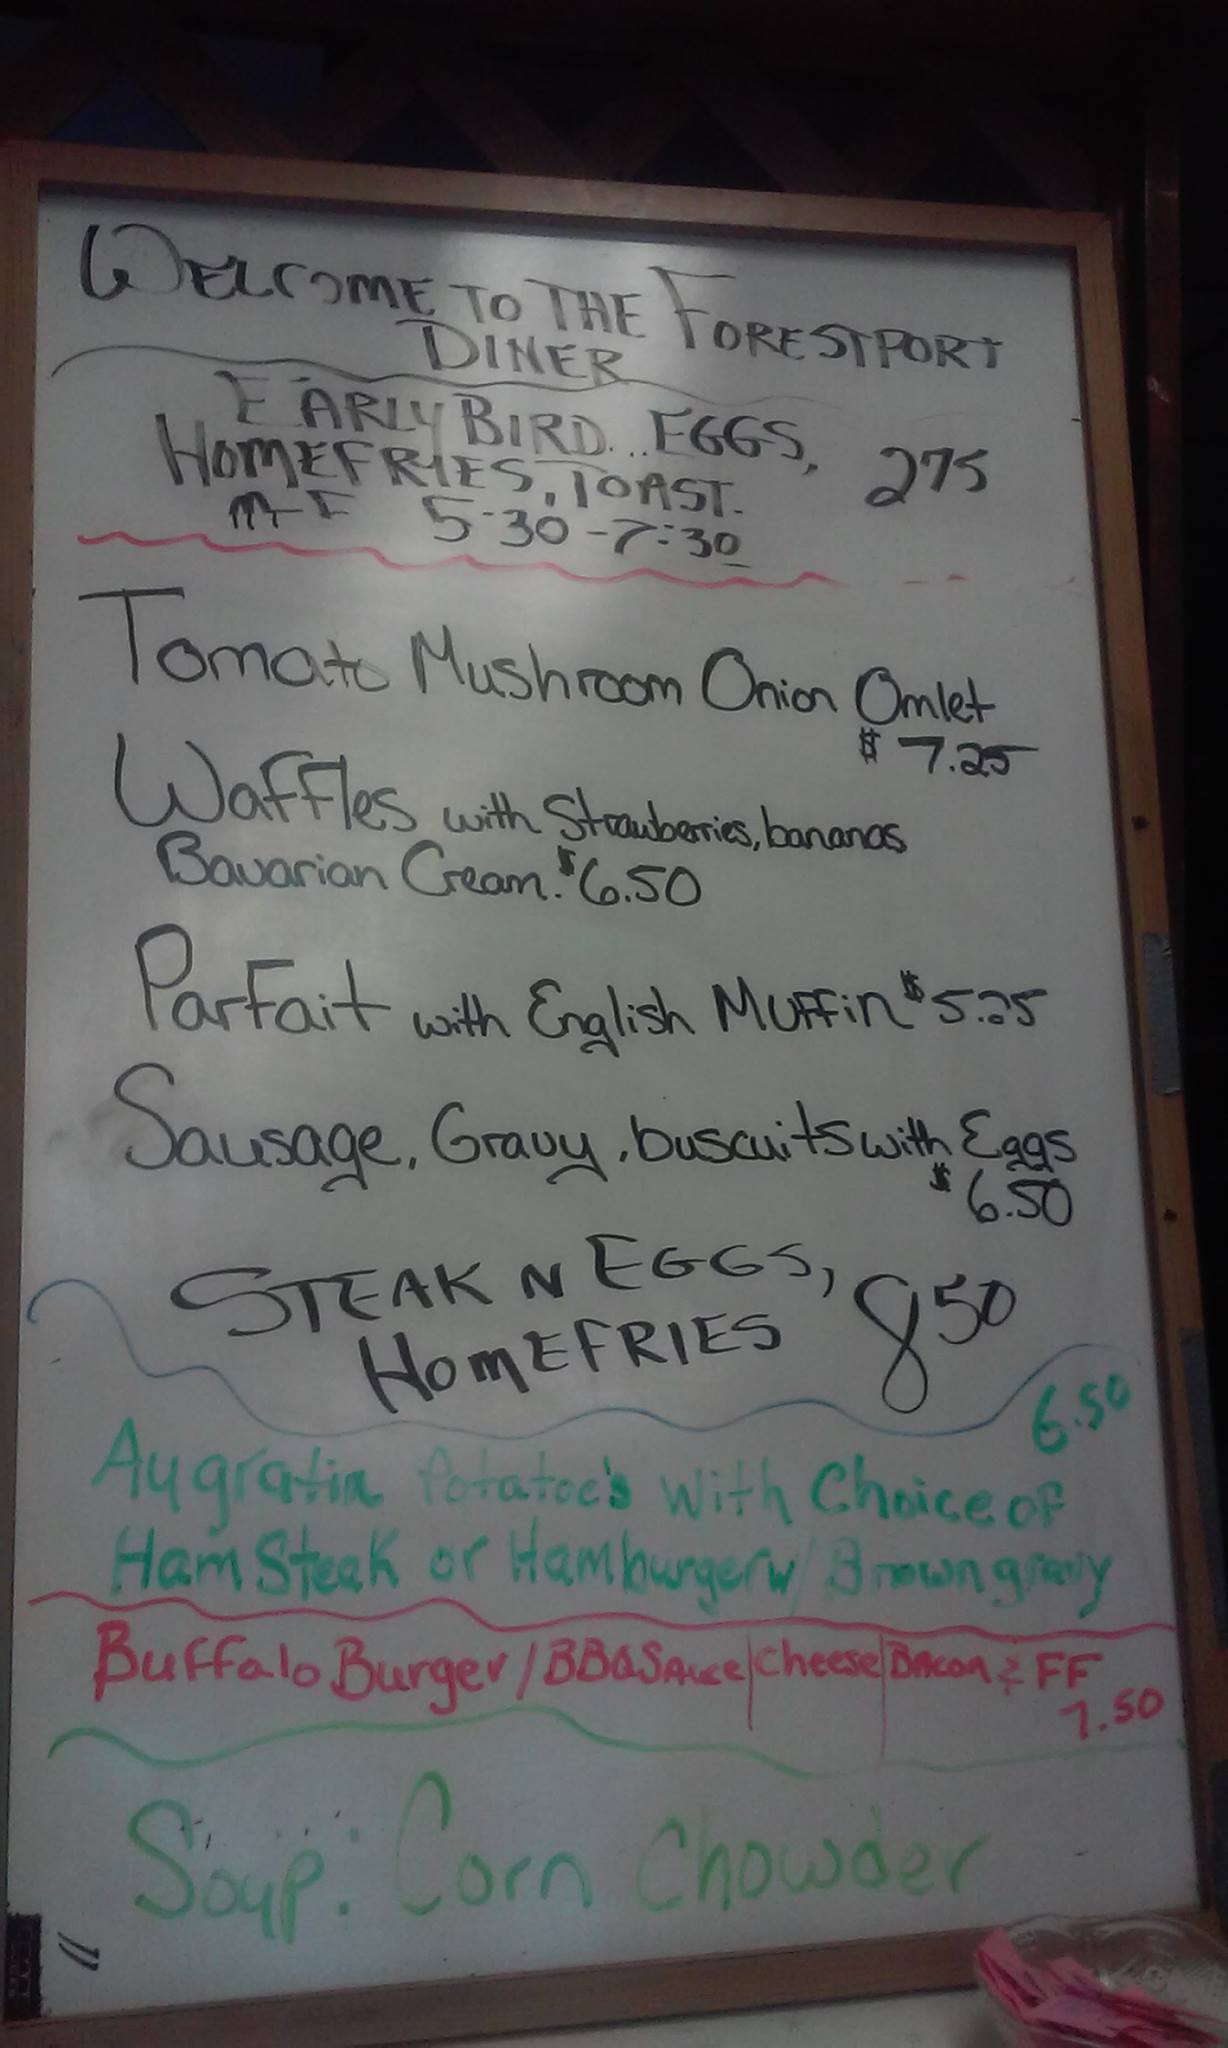 WELCOME TO THE FORESTPORT
DINER
EARLY BIRD... EGGS,
HOMEFRIES, TOAST. 275
M-F 5:30-7:30
Tomato Mushroom Onion Omlet
$ 7.25
Waffles with Strawberries, bananas
Bavarian Cream. $6.50
Parfait with English Muffin $5.25
Sausage, Gravy, buscuits with Eggs
$6.50
STEAK N EGGS, 850
HOMEFRIES
6.50
Augratin Potatoe's With Choice of
Ham Steak or Hamburger w/ Brown gravy
Buffalo Burger/BBQ Sauce|Cheese|Bacon & FF
7.50
Soup: Corn Chowder